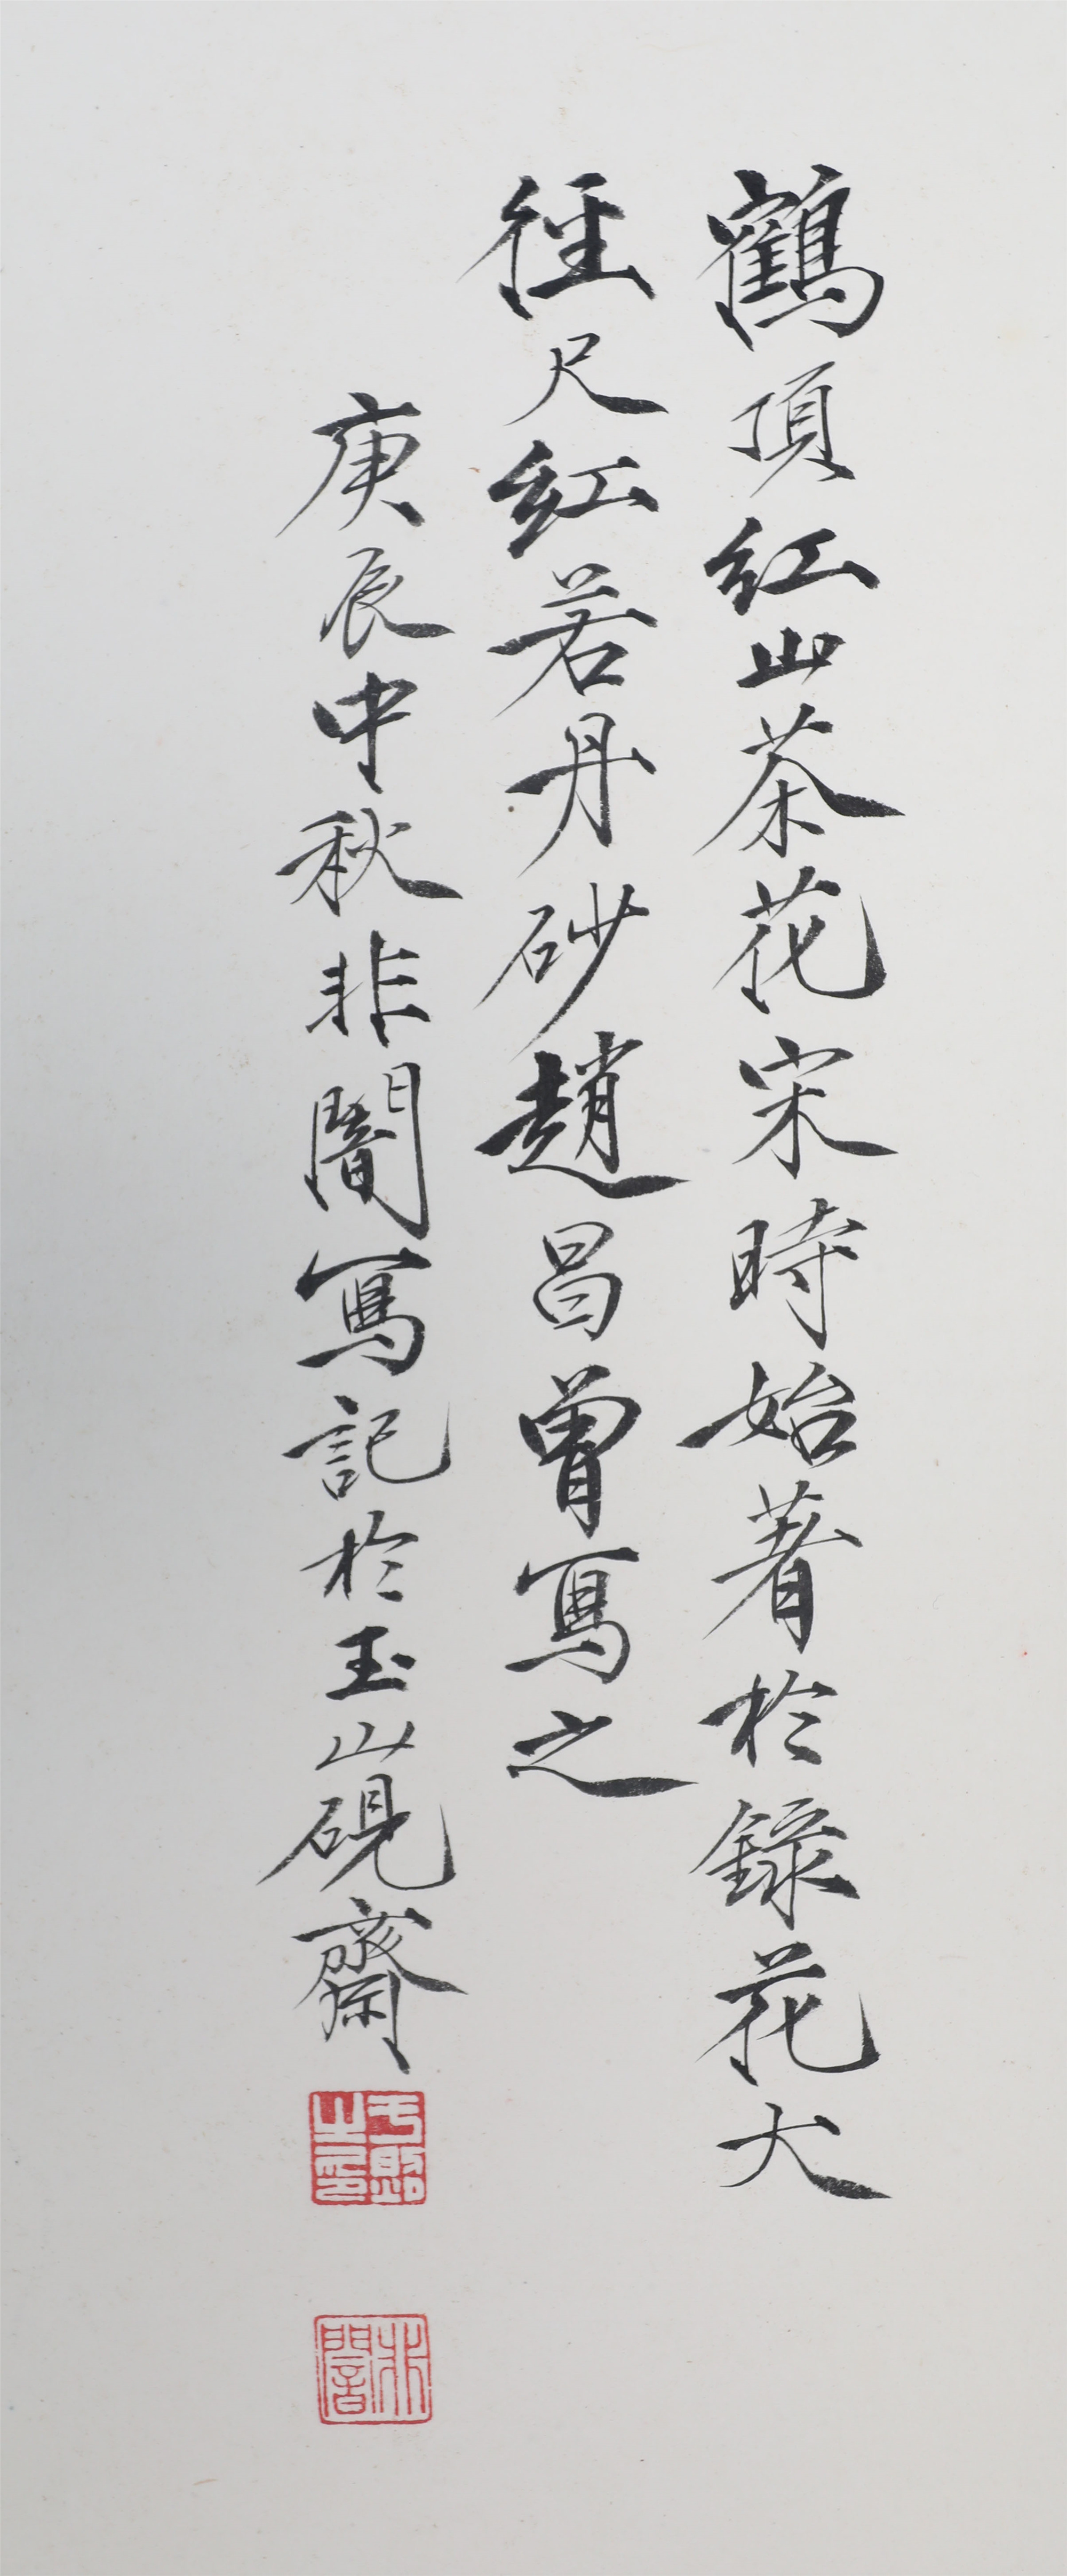 鶴頂紅山茶花宋時始著於錄花大
徑尺紅若丹砂趙昌曾寫之
庚辰中秋非闇寫記於玉山硯齋
于照之印
非闇